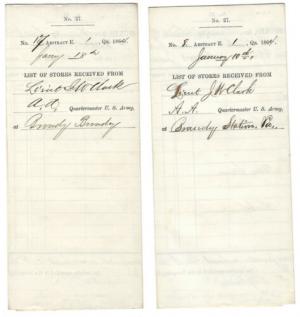 No. 27.
No. 17, ABSTRACT E. 1, QR. 1864.
Jany 18th
LIST OF STORES RECEIVED FROM
Lieut J. W. Clark
A. A. Quartermaster U. S. Army,
at Brandy
No. 27.
No. 8, ABSTRACT E. 1, QR. 1864.
January 18th
LIST OF STORES RECEIVED FROM
Lieut J. W. Clark
A. A. Quartermaster U. S. Army,
at Brandy Station, Va.